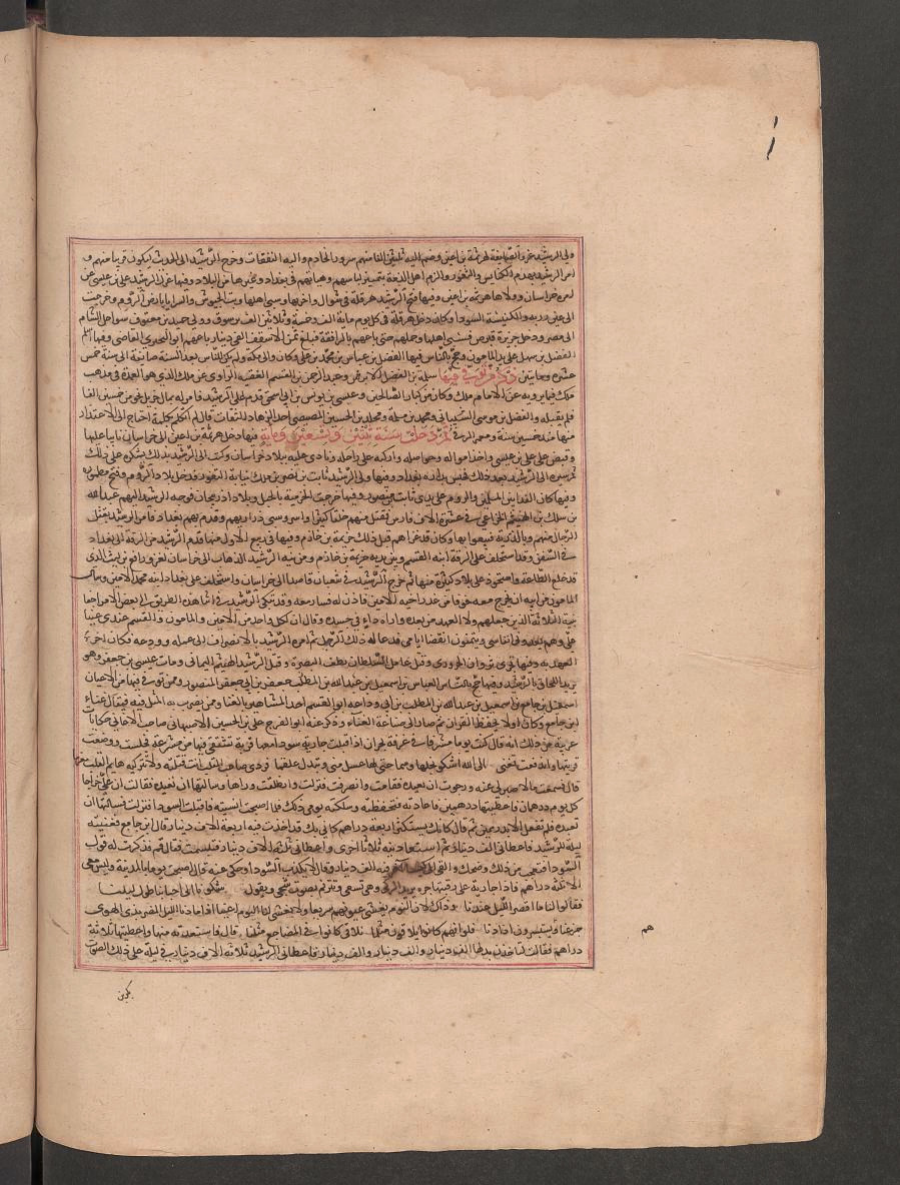 ولى الرشيد غزو الصايفة لهرثمة بن اعين وضم اليه ثلثين الفا منهم سرور الخادم واليه النفقات وخرج الرشيد الى الحدث ليكون قريبا منهم و
امر الرشيد بهدم الكنايس والثغور والزم اهل الذمة بتمييز لباسهم وهياتهم في بغداد وغيرها من البلاد وفيها عزل الرشيد علي بن عيسى عن
امرة خراسان وولاها هرثمة بن اعين وفيها فتح الرشيد هرقلة في شوال واخربها وسبى اهلها وبث الجيوش والسرايا بارض الروم وخرجت
الى عين زربة والكنيسة السودا وكان دخل هرقلة في كل يوم ماية الف وخمسة وثلاثين الف مرسوق وولى حميد بن معيوف سواحل الشام
الى مصر ودخل جزيرة قبرص فسبى اهلها وحملهم حتى باعهم بالرافقة فبلغ ثمن الاسقف الفي دينار باعهم ابو البختري القاضي وفيها اسلم
الفضل بن سهل على يد المامون وحج بالناس فيها الفضل بن عباس بن محمد بن علي وكان والي مكة ولم يكن للناس بعد السنة صايفة الى سنة خمس
عشرة ومايتين ذكر من توفي فيها سلمة بن الفضل الابرش وعبد الرحمن بن القسم الفقيه الراوي عن ملك الذي هو العمدة في مذهب
ملك فيما يرويه عن الامام ملك وكان من كبار الصالحين وعيسى بن يونس بن ابي اسحق قدم على الرشيد فامر له بمال جزيل نحو من خمسين الفا
فلم يقبله والفضل بن موسى الشيباني ومحمد بن سلمة ومحمد بن الحسين المصيصي احد الزهاد الثقات قال لم اتكلم بكلمة احتاج الى الاعتذار
منها منذ خمسين سنة ومعمر الرقي ثم دخلت سنة ثنتين وتسعين وماية فيها دخل هرثمة بن اعين الى خراسان نايبا عليها
وقبض على علي بن عيسى واخذ امواله وحواصله واركبه على راحلة ونادى عليه ببلاد خراسان وكتب الى الرشيد بذلك فشكره على ذلك
ثم سيره الى الرشيد بعد ذلك فحبس بداره ببغداد وفيها ولى الرشيد ثابت بن نصر بن ملك نيابة الثغور فدخل بلاد الروم وفتح مطمورة
وفيها كان الفدا بين المسلمين والروم على يدي ثابت بن نصر وفيها خرجت الخرمية بالجبل وبلاد اذربيجان فوجه الرشيد اليهم عبد الله
بن ملك بن الهيثم الخزاعي في عشرة الاف فارس فقتل منهم خلقا كثيرا واسر وسبى ذراريهم وقدم بهم بغداد فامر الرشيد بقتل
الرجال منهم وبالذرية فبيعوا بها وكان قد غزاهم قبل ذلك خزيمة بن خازم وفيها في ربيع الاول منها قدم الرشيد من الرقة الى بغداد
في السفن وقد استخلف على الرقة ابنه القسم وبين يديه خزيمة بن خازم ومن نية الرشيد الذهاب الى خراسان لغزو رافع بن ليث الذي
قد خلع الطاعة واستحوذ على بلاد كثيرة منها ثم خرج الرشيد في شعبان قاصدا الى خراسان واستخلف على بغداد ابنه محمد الامين وسال
المامون من ابيه ان يخرج معه خوفا من غدر اخيه الامين فاذن له فسار معه وقد شكى الرشيد في اثنا هذه الطريق الى بعض الامرا جفا
بنيه الثلاثة الذين جعلهم ولاة العهد من بعده واراه داء في جسده وقال ان لكل واحد من الامين والمامون والقسم عندي عينا
علي وهم يعدون انفاسي ويتمنون انقضا ايامي فدعا له ذلك الرجل ثم امره الرشيد بالانصراف الى عمله وودعه فكان اخر
العهد به وفيها تحرك ثروان الحروري وقتل عامل السلطان بطف البصرة وقتل الرشيد الهيثم اليماني ومات عيسى بن جعفر وهو
يريد اللحاق بالرشيد وفيها حج بالناس العباس بن عبد الله بن جعفر بن ابي جعفر المنصور وممن توفي فيها من الاعيان
اسمعيل بن جامع بن اسمعيل بن عبد الله بن المطلب بن ابي وداعة ابو القسم احد المشاهير بالغنا وممن يضرب به المثل فيه فيقال غناء
ابن جامع وكان اولا يحفظ القران ثم صار الى صناعة الغناء وذكر عنه ابو الفرج علي بن الحسين الاصبهاني صاحب الاغاني حكايات
غريبة فمن ذلك انه قال كنت يوما مشرفا من غرفة بحران اذ اقبلت جارية سودا معها قربة تستقي فيها من مشرعة فجلست ووضعت
قربتها واندفعت تغني الى الله اشكو بخلها وسماحتي لها عسل مني وتبذل علقما فردي مصاب القلب انت قتلته ولا تتركيه هايم القلب مغرما
قال فسمعت مالا صبر لي عنه ورجوت ان تعيده فقامت وانصرفت فنزلت وانطلقت وراها وسالتها ان تعيده فقالت ان علي خراجا
كل يوم درهمان فاعطيتها درهمين فاعادته فحفظته وسلكته يومي ذلك فلما اصبحت انسيته فاقبلت السودا فنزلت فسالتها ان
تعيده فلم تفعل الا بدرهمين ثم قال كانك تستكثر اربعة دراهم كاني بك قد اخذت فيه اربعة الاف دينار قال ابن جامع فغنيته
ليلة للرشيد فاعطاني الف دينار ثم استعادنيه ثلاثا اخرى واعطاني ثلاثة الاف دينار فتبسمت فقال مم فذكرت له قول
السودا فتعجب من ذلك وضحك والقى الي كيسا اخر فيه الف دينار وقال لا يكذب السودا وحكي عنه قال اصبحت يوما بالمدينة وليس معي
الا ثلثة دراهم فاذا جارية على رقبتها جرة تريد الركي وهي تسعى وتترنم بصوت شجي ويقول شكونا الى احبابنا طول ليلنا
فقالوا لنا ما اقصر الليل عندنا وذاك لان النوم يغشى عيونهم سريعا ولا يغشى لنا النوم اعينا اذا ما دنا الليل المضر بذي الهوى
جزعنا ويستبشرون اذا دنا فلو انهم كانوا يلاقون مثلما نلاقي كانوا في المضاجع مثلنا قال فاستعدته منها واعطيتها ثلاثة
دراهم فقالت لتاخذن بدلها الف دينار والف دينار والف دينار فاعطاني الرشيد ثلاثة الاف دينار في ليلة على ذلك الصوت
هم
بكر بن